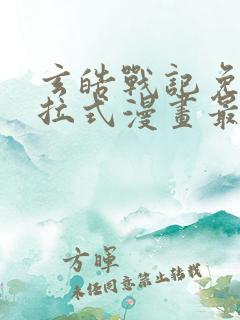 玄皓戰記免
拉式漫畫最
方暉
未經同意禁止轉載